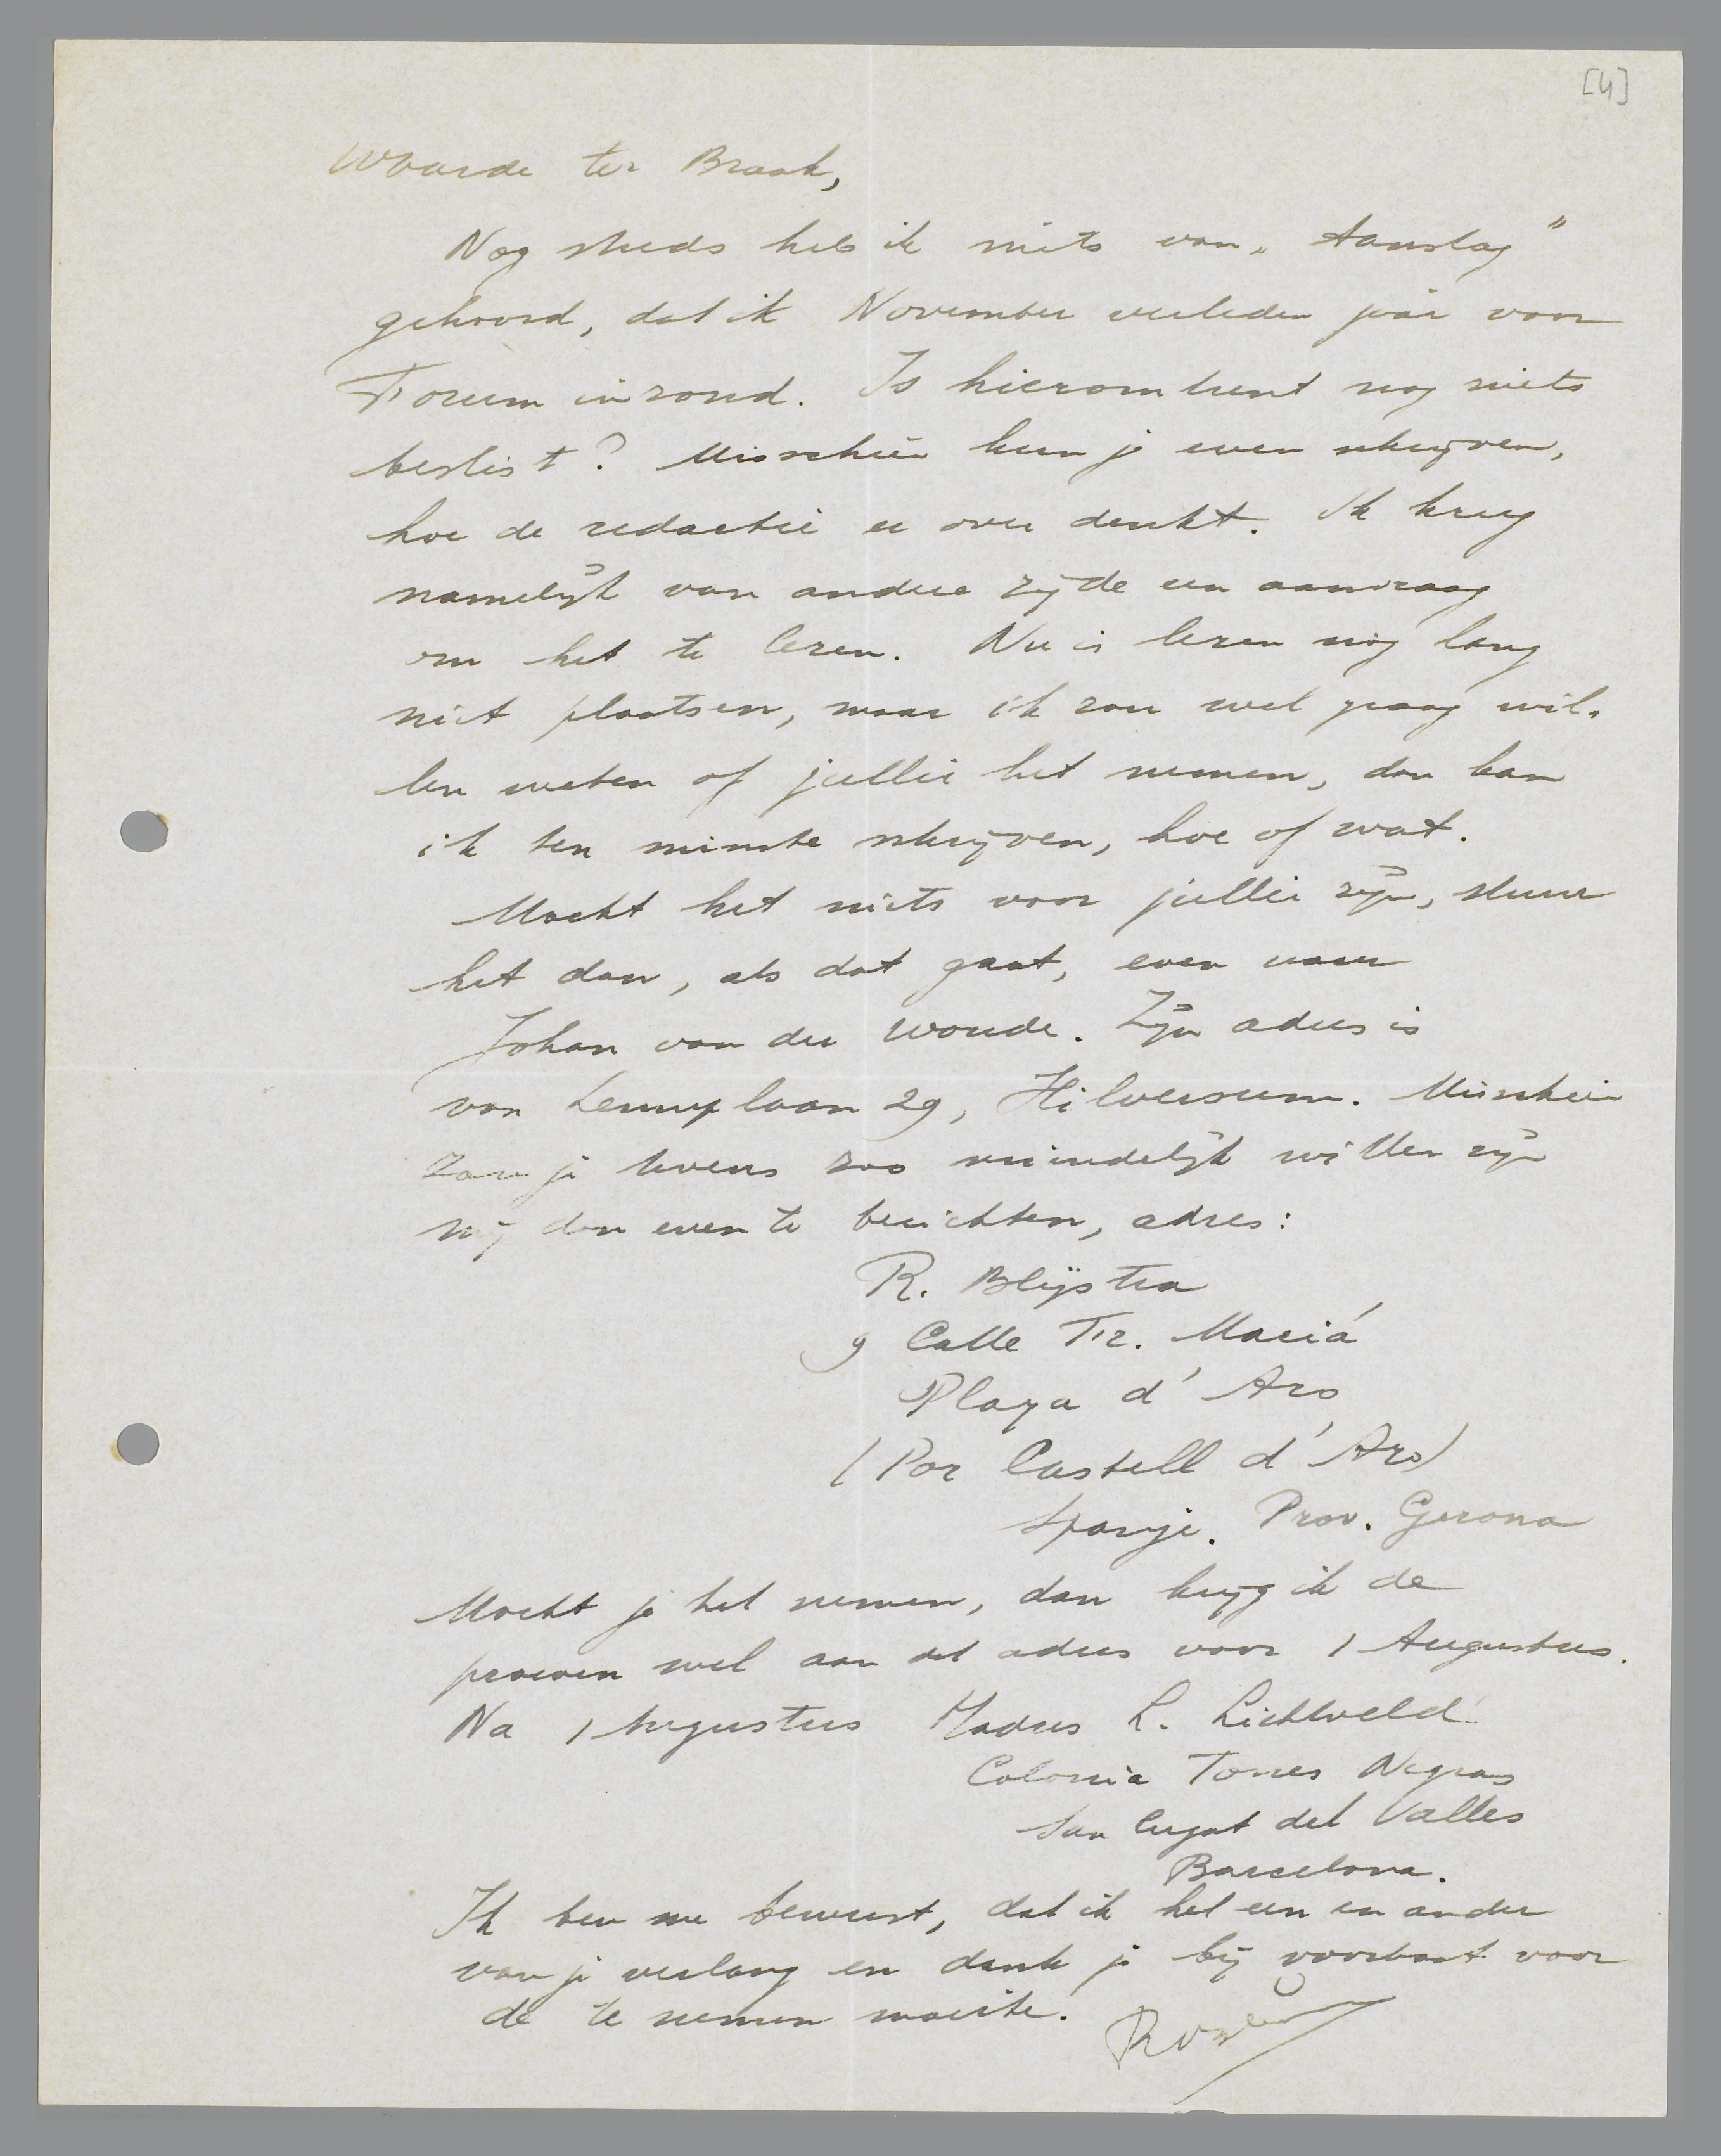 [4]
Waarde ter Braak,
Nog steeds heb ik niets van „Aanslag”
gehoord, dat ik November verleden jaar voor
Forum inzond. Is hieromtrent nog niets
beslist? Misschien kun je even schrijven,
hoe de redactie er over denkt. Ik kreeg
namelijk van andere zijde een aanvraag
om het te lezen. Nu is lezen nog lang
niet plaatsen, maar ik zou wel graag wil-
len weten of jullie het nemen, dan kan
ik ten minste schrijven, hoe of wat.
Mocht het niets voor jullie zijn, stuur
het dan, als dat gaat, even naar
Johan van der Woude. Zijn adres is
van Lenneplaan 29, Hilversum. Misschien
zou je tevens zoo vriendelijk willen zijn
mij dan even te berichten, adres:
R. Blijstra
9 Calle Fr. Maciá
Playa d' Aro
(Por Castell d' Aro)
Spanje. Prov. Gerona
Mocht je het nemen, dan krijg ik de
proeven wel aan dit adres voor 1 Augustus.
Na 1 Augustus adres L. Lichtveld
Colonia Torres Negras
San Cugat del Valles
Barcelona.
Ik ben me bewust, dat ik het een en ander
van je verlang en dank je bij voorbaat voor
de te nemen moeite.